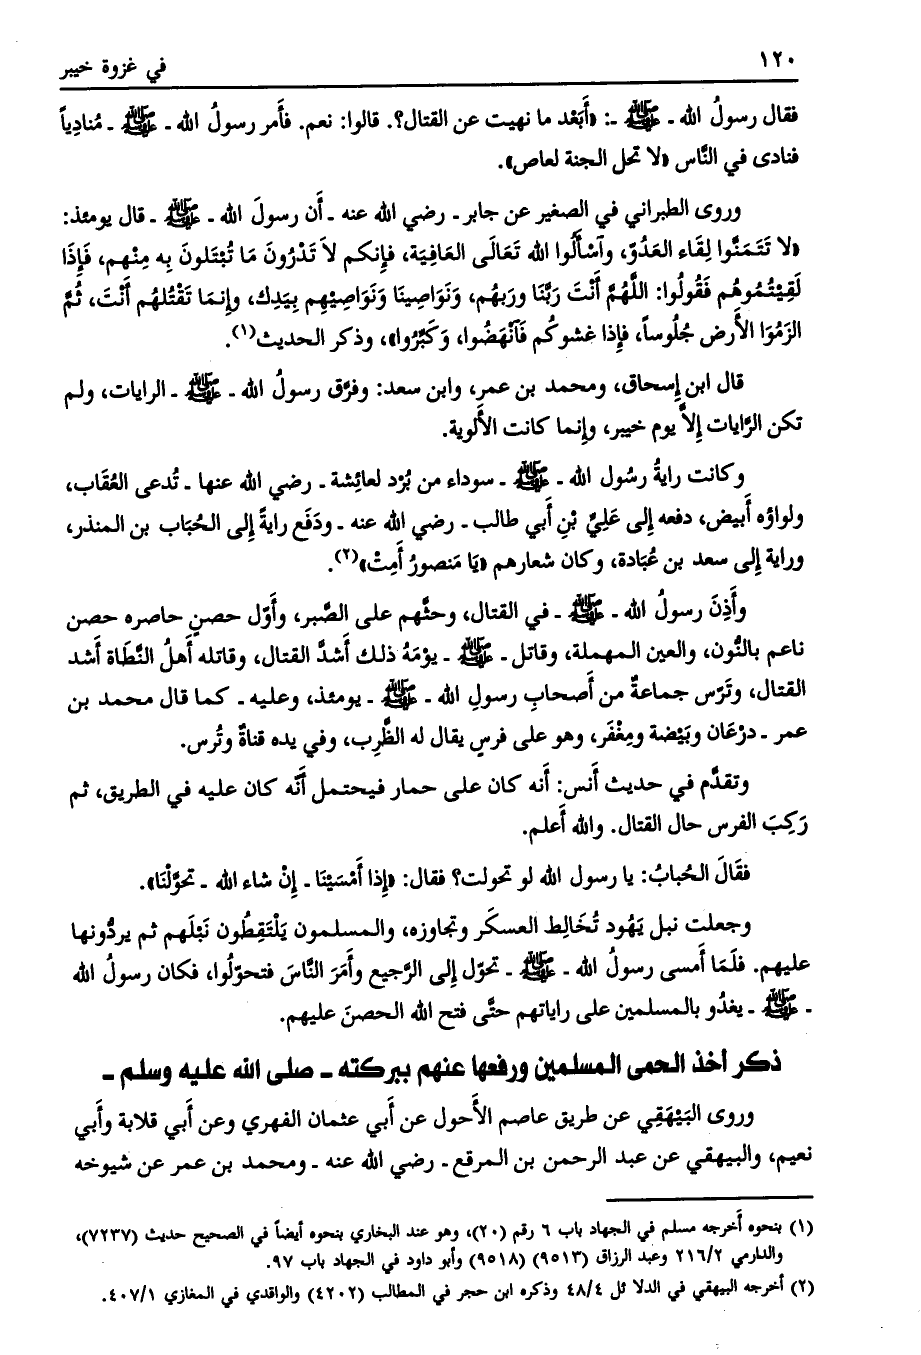 ١٢٠ في غزوة خيبر
فقال رسولُ الله ـ ﷺ ـ: «أَبَعْد ما نهيت عن القتال؟. قالوا: نعم. فأَمر رسولُ الله ـ ﷺ ـ مُنادِياً
فنادى في النَّاس «لا تحل الجنة لعاص».
وروى الطبراني في الصغير عن جابر ـ رضي الله عنه ـ أَن رسولَ الله ـ ﷺ ـ قال يومئذ:
«لا تَتَمَنَّوا لِقَاء العَدُوّ، واَسْأَلُوا الله تَعَالَى العَافِيَة، فإِنكم لاَ تَدْرُونَ مَا تُبْتَلونَ بِه مِنْهم، فَإِذَا
لَقِيْتُمُوهُم فَقُولُوا: اللَّهُمَّ أَنْتَ رَبَّنَا وربَهُم، وَنَوَاصِينَا وَنَوَاصِيْهِم بِيَدِك، وإِنمَا تَقْتُلهُم أَنْتَ، ثُمَّ
الزَمُوَا الأَرض جُلُوساً، فإِذا غشوكُم فَاَنْهَضُوا، وَكَبِّرُوا»، وذكر الحديث(١).
قال ابن إِسحاق، ومحمد بن عمر، وابن سعد: وفرَّق رسولُ الله ـ ﷺ ـ الرايات، ولم
تكن الرَّايات إِلاَّ يوم خيبر، وإِنما كانت الأَلوية.
وكانت رايةُ رسُول الله ـ ﷺ ـ سوداء من بُرْد لعائِشة ـ رضي الله عنها ـ تُدعى العُقَاب،
ولواؤه أَبيض، دفعه إِلى عَلِيِّ بْنِ أَبي طالب ـ رضي الله عنه ـ ودَفَع رايةً إِلى الحُبَاب بن المنذر،
وراية إِلى سعد بن عُبَادة، وكان شعارهم «يَا مَنصورُ أَمِتْ»(٢).
وأَذِنَ رسولُ الله ـ ﷺ ـ في القتال، وحثَّهم على الصَّبر، وأَوّل حصنٍ حاصره حصن
ناعم بالنُّون، والعين المهملة، وقاتل ـ ﷺ ـ يوْمَهُ ذلك أَشدَّ القتال، وقاتله أَهلُ النَّطَاة أَشد
القتال، وتَرّس جماعةٌ من أَصحابِ رسولِ الله ـ ﷺ ـ يومئذ، وعليه ـ كما قال محمد بن
عمر ـ درْعَان وبَيْضة ومِغْفَر، وهو على فرسٍ يقال له الظَّرِب، وفي يده قناةٌ وتُرس.
وتقدَّم في حديث أَنس: أَنه كان على حمار فيحتمل أَنّه كان عليه في الطريق، ثم
رَكِبَ الفرس حال القتال. والله أَعلم.
فقَالَ الحُبابُ: يا رسول الله لو تحولت؟ فقال: «إِذا أَمْسَيْنَا ـ إِنْ شاء الله ـ تحوَّلْنَا».
وجعلت نبل يَهُود تُخَالِط العسكَر وتجاوزه، والمسلمون يَلْتَقِطُون نَبْلَهم ثم يردُّونها
عليهم. فلَمَا أَمسى رسولُ الله ـ ﷺ ـ تحوّل إِلى الرَّجيع وأَمَرَ النَّاسَ فتحوّلُوا، فكان رسولُ الله
ـ ﷺ ـ يغدُو بالمسلمين على راياتهم حتَّى فتح الله الحصنَ عليهم.
ذكر أخذ الحمى المسلمين ورفعها عنهم ببركته ـ صلى الله عليه وسلم ـ
وروى البَيْهَقِي عن طريق عاصم الأَحول عن أَبي عثمان الفهري وعن أَبي قلابة وأَبي
نعيم، والبيهقي عن عبد الرحمن بن المرقع ـ رضي الله عنه ـ ومحمد بن عمر عن شيوخه
(١) بنحوه أَخرجه مسلم في الجهاد باب ٦ رقم (٢٠)، وهو عند البخاري بنحوه أيضاً في الصحيح حديث (٧٢٣٧)،
والدارمي ٢١٦/٢ وعبد الرزاق (٩٥١٣) (٩٥١٨) وأبو داود في الجهاد باب ٩٧.
(٢) أخرجه البيهقي في الدلا ئل ٤٨/٤ وذكره ابن حجر في المطالب (٤٢٠٢) والواقدي في المغازي ٤٠٧/١.